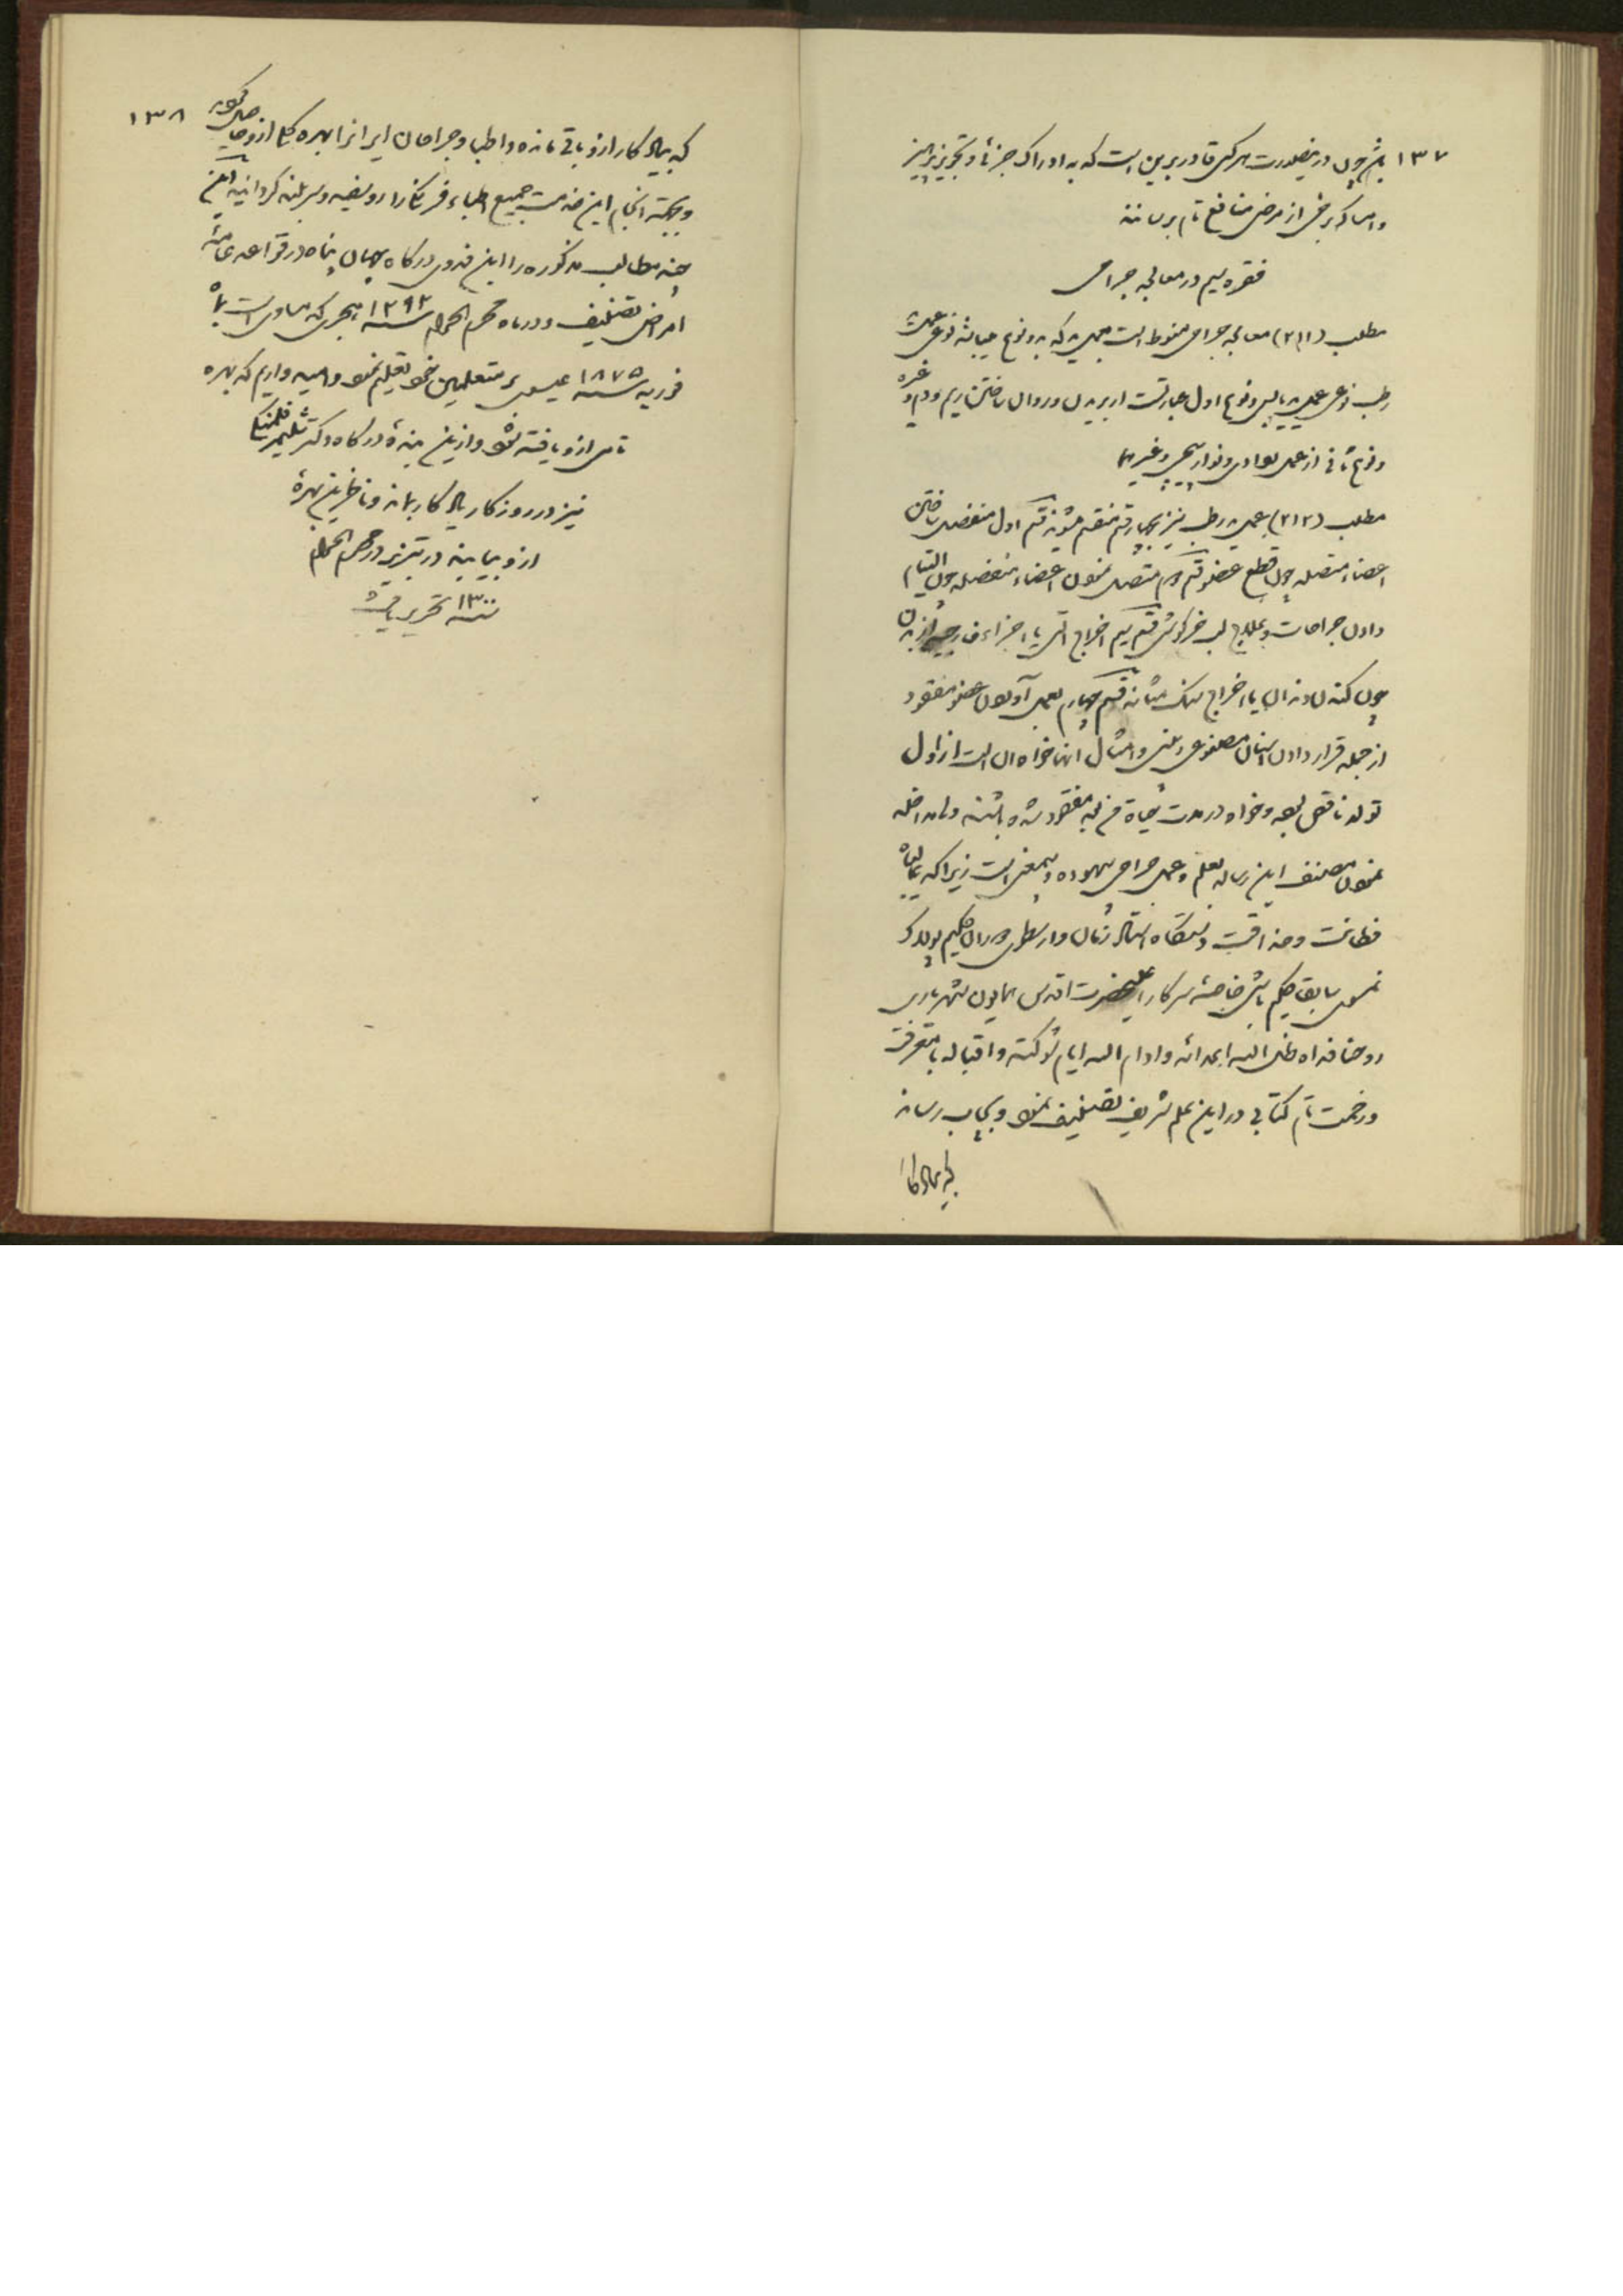 ۱۳۷
باشد چون درینصورت هر کس قادر برین است که به ادراک جزئی و تجویز پرهیز
و امساک برخی از مرضی منافع تام برساند
فقره سیم در معالجه جراحی
مطلب (۲۱۱) معالجه جراحی منوط است بعملی که بدو نوع میباشد نوعی عمل
رطب نوعی عمل یابس و نوع اول عبارتست از بریدن و روان ساختن ریم و دم و غیره
و نوع ثانی از عمل بوادی و نوار پیچی و غیرهما
مطلب (۲۱۲) عمل رطب نیز بچهار قسم منقسم میشوند قسم اول منفصل ساختن
اعضاء متصله چون قطع عضو قسم دوم متصل نمودن اعضاء منفصله چون التیام
دادن جراحات و علاج لب خرگوشی قسم سیم اخراج اشیاء اجزاء خارجیه از بدن
چون کندن دندان یا اخراج سنگ مثانه قسم چهارم بعمل آوردن عضو مفقود
از جمله قرار دادن اسنان مصنوعی و بینی و امثال آنها خواه آن است از اول
تولد ناقص بوده و خواه در مدت حیاة مریض مفقود شده باشند و مداخله
نمودن مصنف این رساله بعلم و عمل جراحی بیهوده و بیمعنی است زیرا که عالیجاه
فطانت و حذاقت دستگاه افتخار زمان و ارسطوی دوران حکیم پولاک
نمسوی سابقا حکیم باشی خاصه سرکار اعلیحضرت اقدس همایون شهریاری
روحنا فداه ظل الله ابدالله و ادام الله ایام شوکته و اقباله با معرفت
و زحمت تام کتابی در این علم شریف تصنیف نمود و بچاپ رسانید
که بیادگار
۱۳۸
که بیادگار ازو باقی مانده و اطبا و جراحان ایران را بهره کلی ازو حاصل گردید
و بجهة انجام این خدمت جمیع اطباء فرنگ را روسفید و سربلند گردانید این
چند مطالب مذکوره را این فدوی درگاه جهان پناه در قواعد عامه
امراض تصنیف و در ماه محرم الحرام سنه ۱۲۹۲ هجری که مساوی است با ماه
فوریه سنه ۱۸۷۵ عیسوی بر متعلمین خود تعلیم نمود و امید داریم که بهره
تامی ازو یافته شود و ازین بنده درگاه دکتر شلیمر فلمنکی
نیز در روزگار یادگار بماند و ناظرین بهره
ازو بیابند در تبریز در محرم الحرام
سنه ۱۳۰۰ تحریر یافت